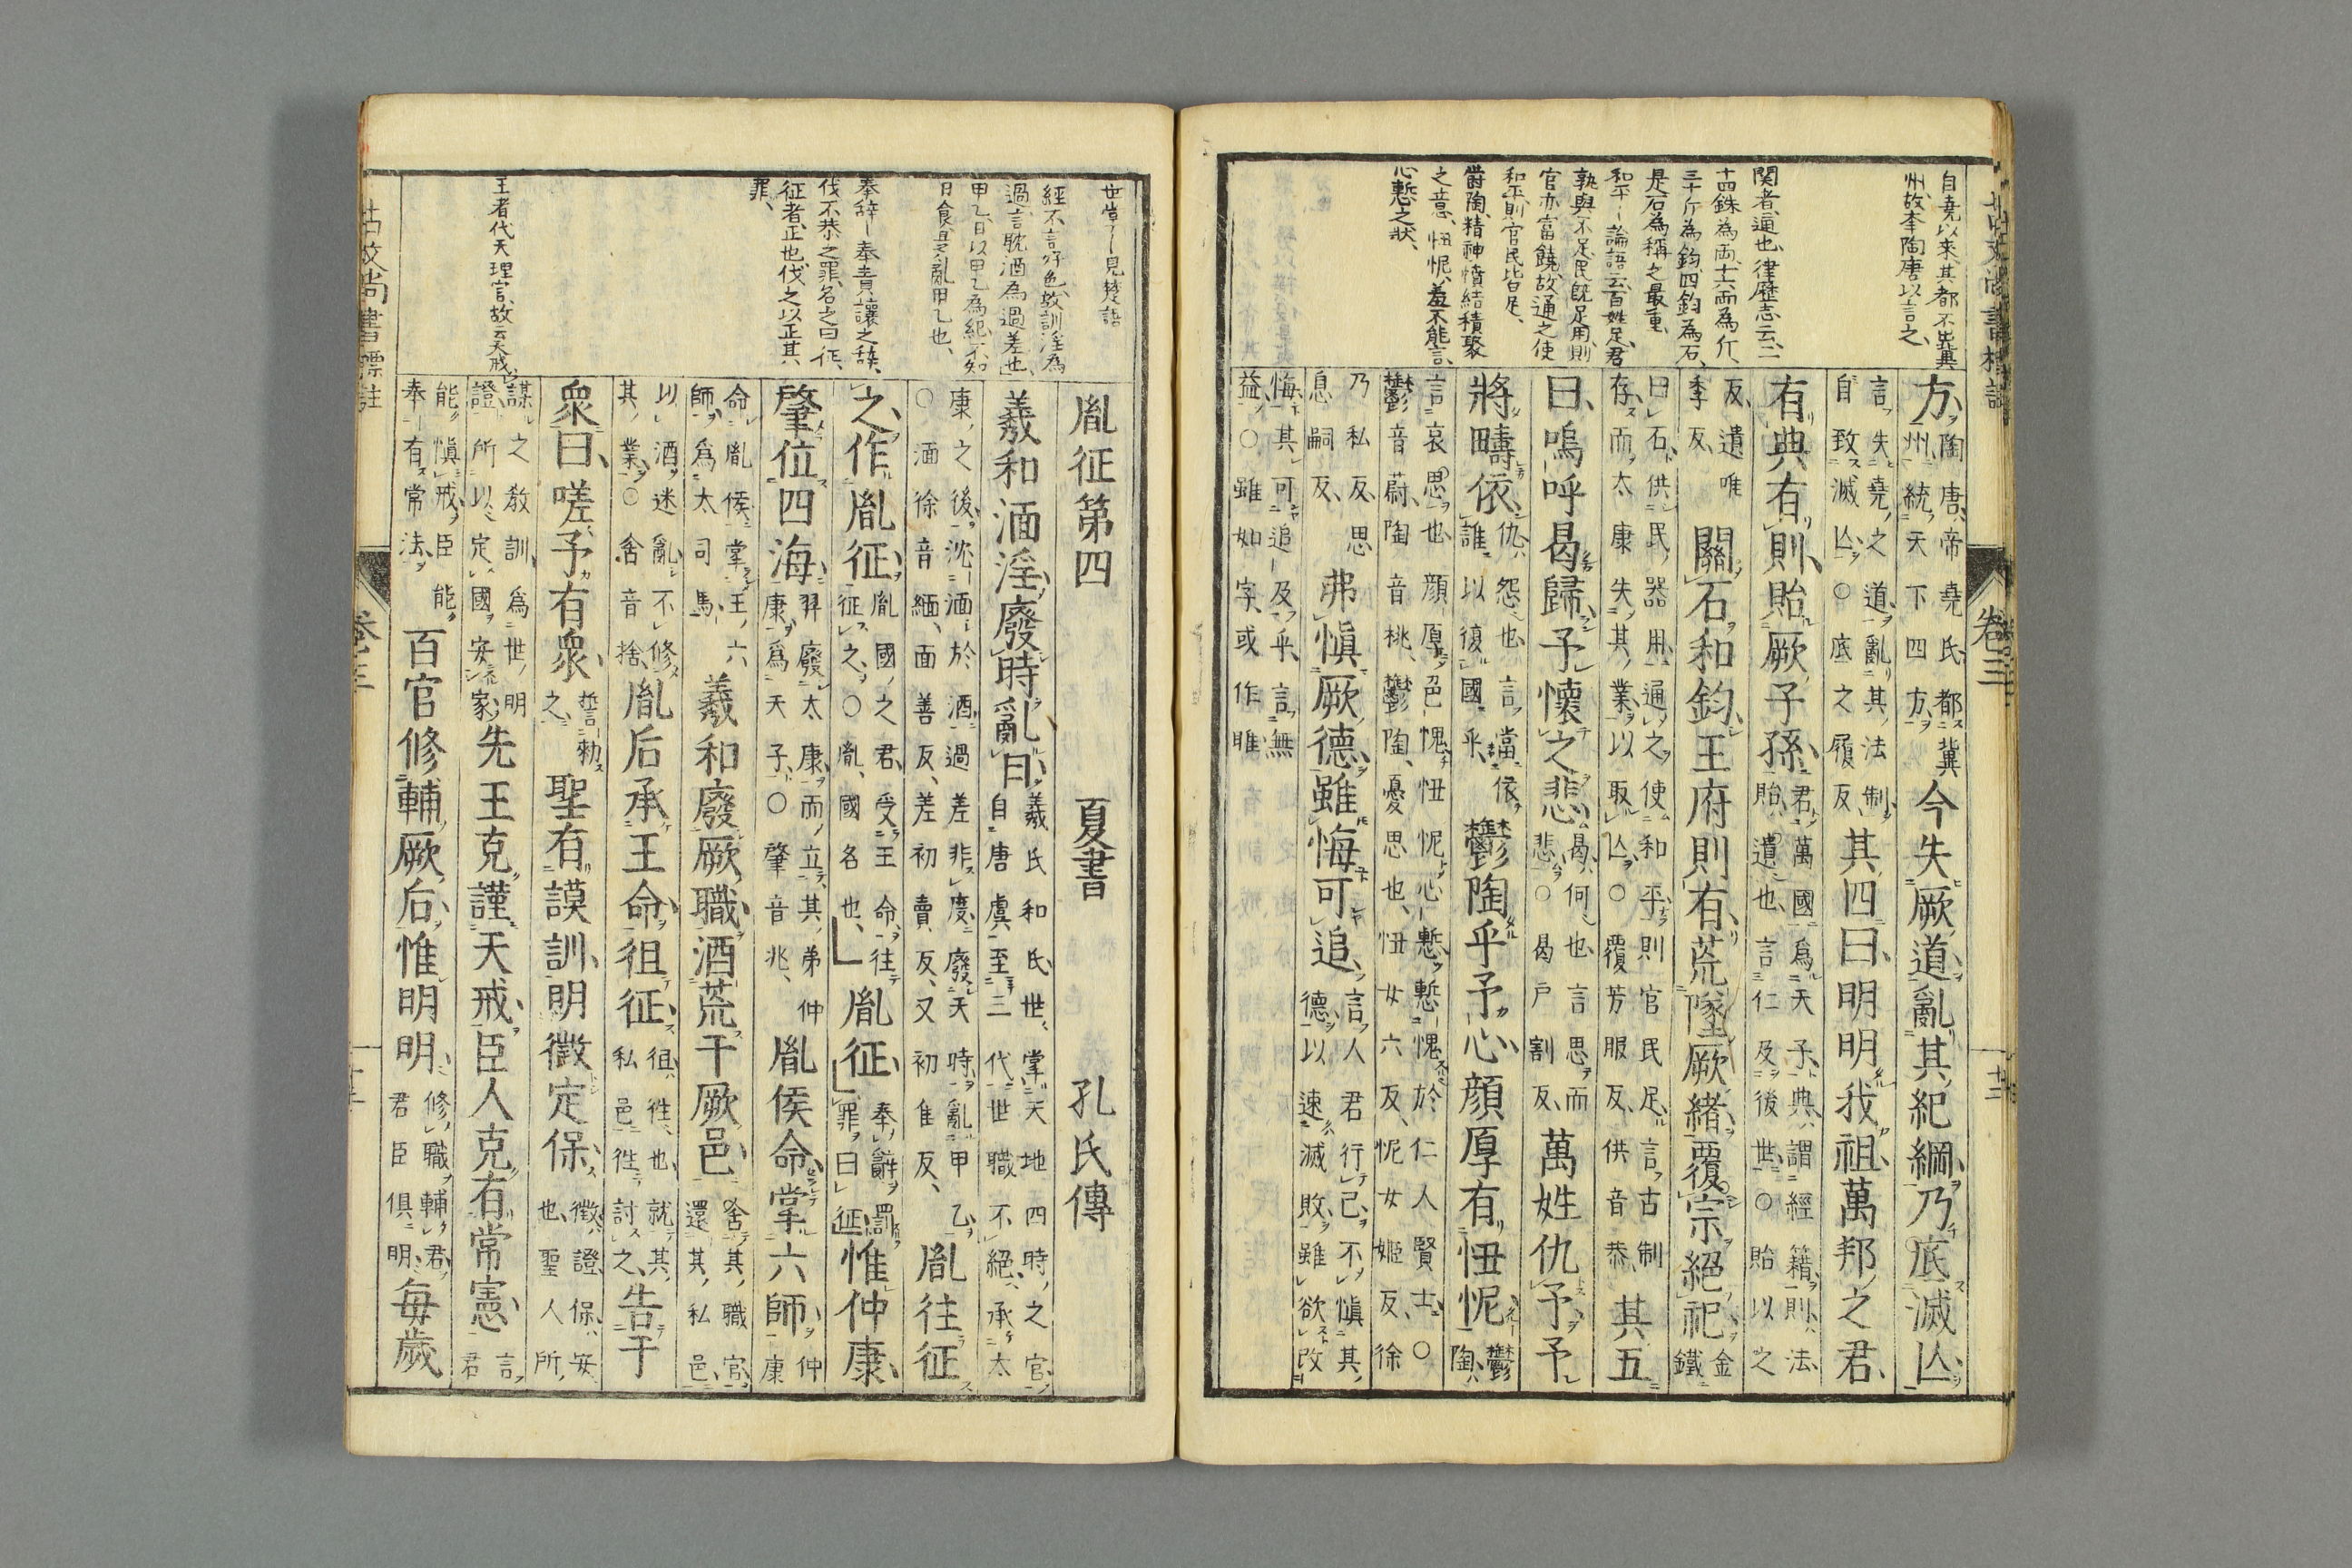 古文尚書標註
卷三
十二
自堯以來其都不出冀
州故本陶唐以言之
関者通也律歷志云二
十四銖為両十六両為斤
三十斤為鈞四鈞為石
是石為稱之最重
和平ー論語云百姓足君
孰與不足民既足用則
官亦富饒故通之使
和平則官民皆足
欝陶精神憤結積聚
之意忸怩羞不能言
心慙之状
方陶唐帝堯氏都冀州統天下四方今失厥道亂其紀綱乃底滅亾
言失堯之道亂其法制自致滅亾○底之履反其四曰明明我祖萬邦之君
有典有則貽厥子孫君萬國爲天子典謂經籍則法貽遺也言仁及後世○貽以之
反遺唯季反關石和鈞王府則有荒墜厥緒覆宗絕祀金鐵
曰石供民器用通之使和平則官民足言古制存而太康失其業以取亾○覆芳服反供音恭其五
曰嗚呼曷歸予懷之悲曷何也言思而悲○曷戶割反萬姓仇予予
將疇依仇怨也言當依誰以復國乎鬱陶乎予心顔厚有忸怩鬱陶
言哀思也顔厚色愧忸怩心慙慙愧於仁人賢士○鬱音蔚陶音桃鬱陶憂思也忸女六反怩女姬反徐
乃私反思息嗣反弗愼厥德雖悔可追言人君行己不愼其德以速滅敗雖欲改
悔其可追及乎言無益○雖如字或作雎
世掌ー見楚語
經不言好色故訓淫為
過言耽酒為過差也
甲乙日以甲乙為紀不知
日食是乱甲乙也
奉辞ー奉責讓之辞
伐不恭之罪名之曰征
征者正也伐之以正其
罪
王者代天理官故云天戒
胤征第四 夏書 孔氏傳
羲和湎淫廢時亂日羲氏和氏世掌天地四時之官自唐虞至三代世職不絕承太
康之後沈湎於酒過差非度廢天時亂甲乙○湎徐音緬面善反差初賣反又初隹反胤往征
之作胤征胤國之君受王命往征之○胤國名也胤征奉辭罰罪曰征惟仲康
肇位四海羿廢太康而立其弟仲康爲天子○肇音兆胤侯命掌六師仲康
命胤侯掌王六師爲太司馬羲和廢厥職酒荒于厥邑舍其職官還其私邑
以酒迷亂不修其業○舍音捨胤后承王命徂征徂往也就其私邑往討之告于
衆曰嗟予有衆誓勑之聖有謨訓明徵定保徵證保安也聖人所
謀之敎訓爲世明證所以定國安家先王克謹天戒臣人克有常憲言君
能愼戒臣能奉有常法百官修輔厥后惟明明修職輔君君臣俱明每歲
古文尚書標註
卷三